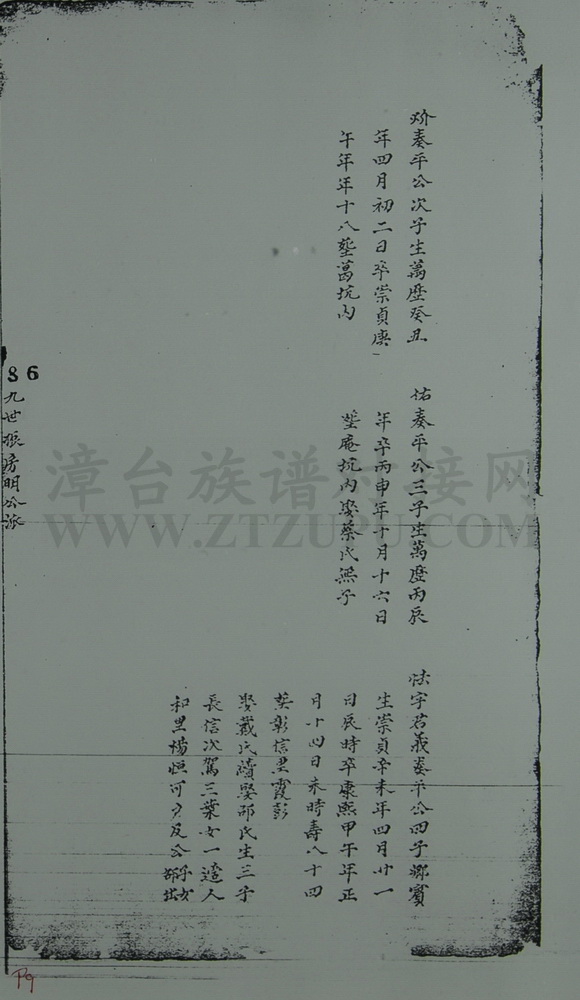 奏平公次子生萬曆癸丑
年四月初二日卒崇貞庚
午年年十八塟葛坑內
佑奏平公三子生萬曆丙辰
年卒丙申年十月十六日
塟庵坑內娶蔡氏無子
字君義奏平公四子鄉賓
生崇貞辛未年四月廿一
日辰時卒康熙甲午年正
月十四日未時壽八十四
葬彰信里霞彭
娶戴氏續娶邵氏生三子
長信次駕三葉女一適人
和里楊恒可
子女
邵出
86
九世
明公派
漳台族谱对接网
WWW.ZTZUPU.COM
P9